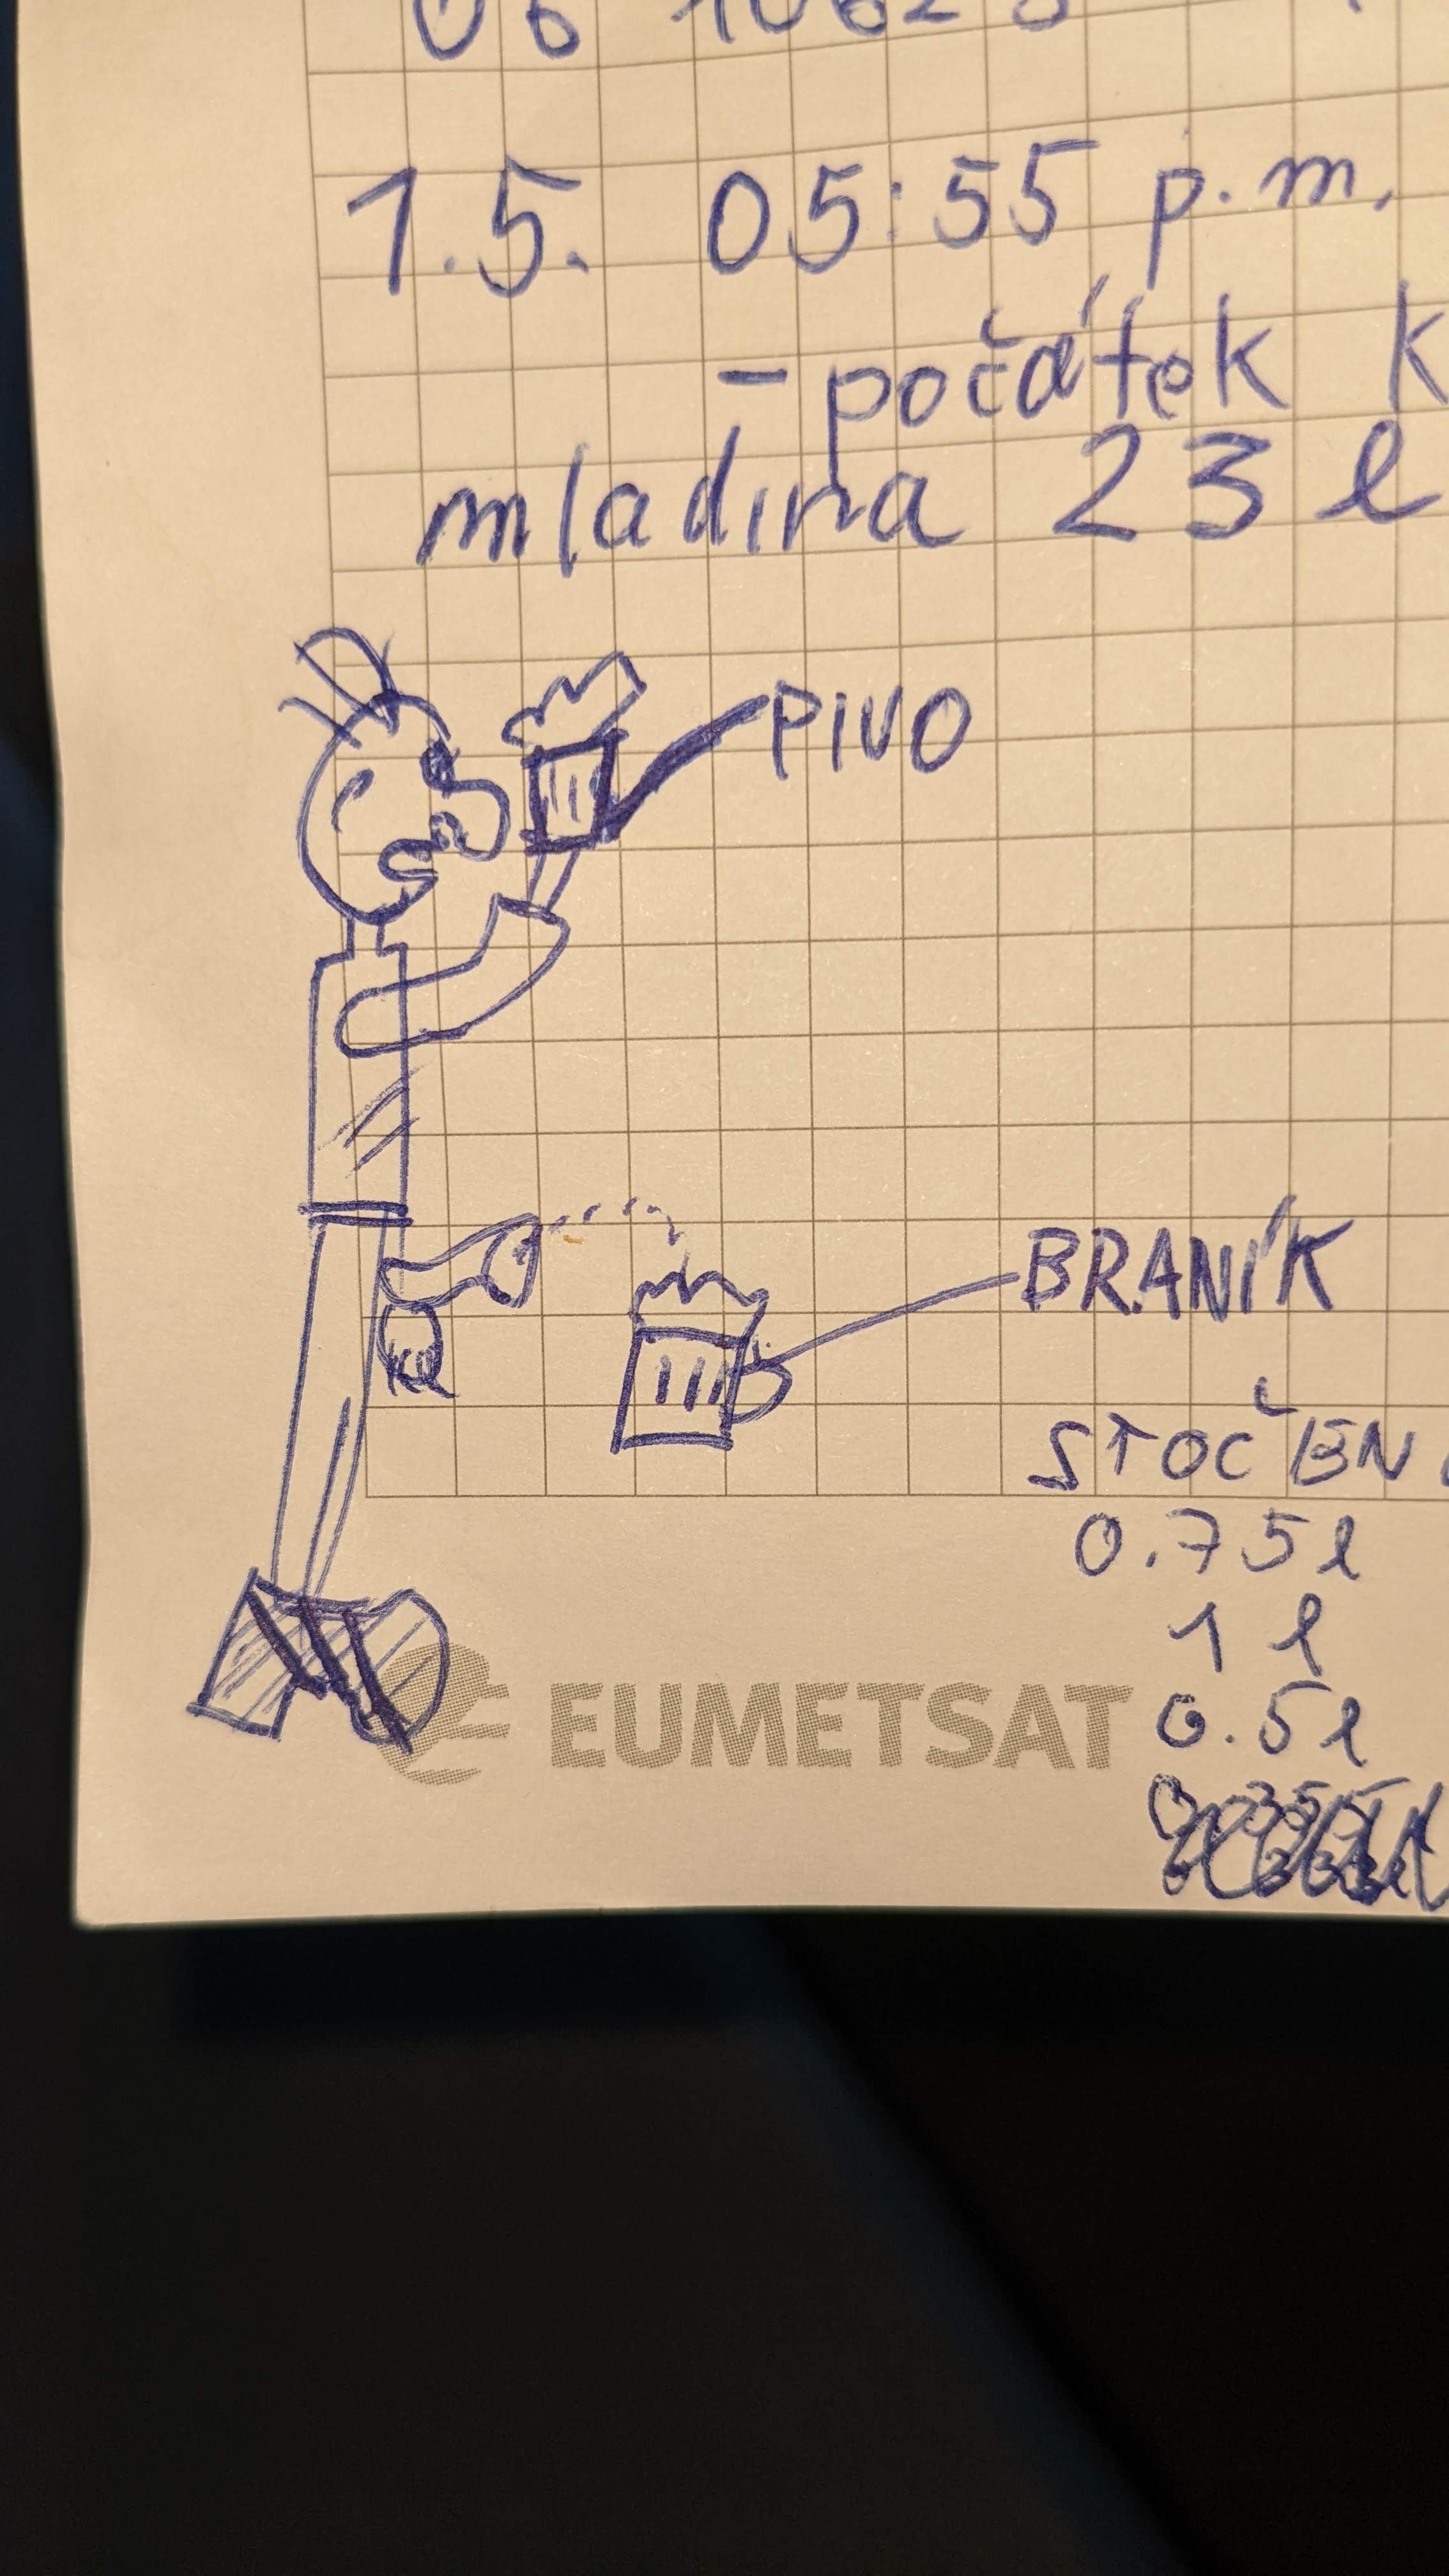 1.5. 05:55 p.m.
- počátek k
mladina 23 l
PIVO
BRANÍK
STOČEN
0.75l
1 l
0.5l
EUMETSAT